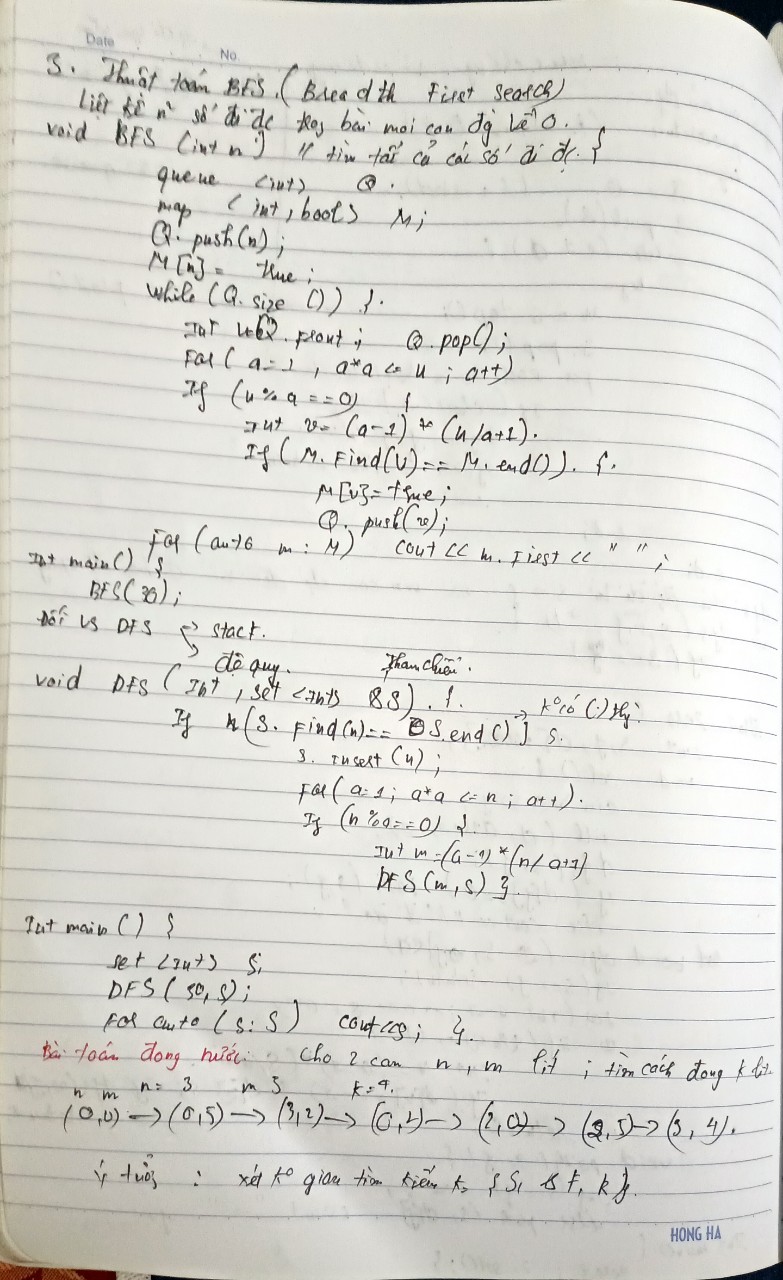 Date No
3. Thuật toán BFS. (Breadth First Search)
Liệt kê số đi đc bài mỗi con về 0.
void BFS (int n) // tìm tất cả các số đi đc. {
queue <int> Q.
map <int, bool> M;
Q. push(n);
M[n] = true;
while (Q. size ()) {
Int u = Q. front; Q. pop();
For ( a = 1, a*a <= u ; a++)
If (u % a == 0) {
Int v = (a-1) * (u/a+1).
If ( M. Find(v) == M. end()). {.
M[v] = true;
Q. push(v);
For (auto m : M) cout << m. First << " ";
Int main() {
BFS(30);
Đối vs DFS → stack.
→ đệ quy. Tham chiếu.
void DFS (Int, set <int> &S). {. → k° có (.)
If (S. Find(n) == S. end()) S.
S. Insert (u);
For( a=1; a*a <= n; a++).
If (n % a == 0) {.
Int m = (a-1) * (n/a+1)
DFS (m, s) }.
Int main () {
set <Int> S;
DFS ( 50, S);
For auto ( s: S ) cout << s; }.
Bài toán đong nước: Cho 2 can n, m lít ; tìm cách đong k lít.
n m n = 3 m 5 k = 4.
(0,0) → (0,5) → (3,2) → (0,2) → (2,0) → (2,5) → (3, 4).
Ý tưởng : xét k° gian tìm kiếm
HONG HA